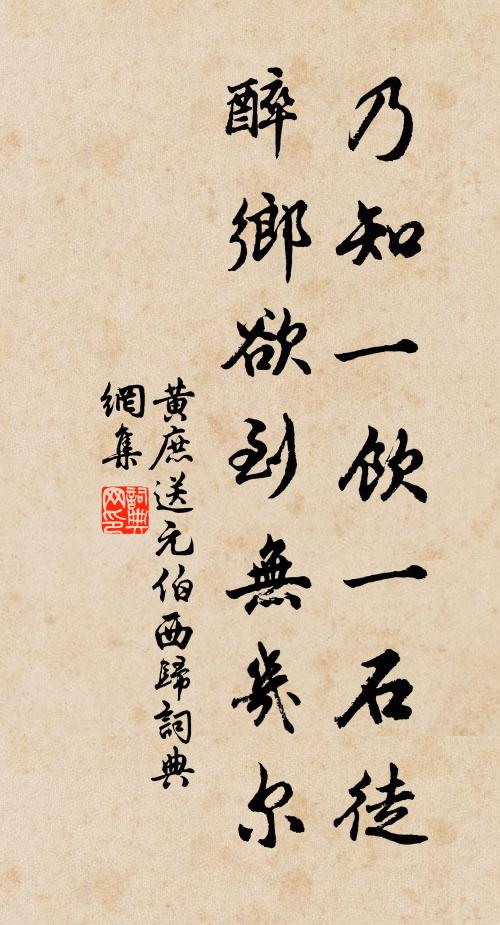 乃知一飲一石徒
醉鄉欲到無幾尔
黃庶送元伯西歸詞典
網集
詞典网印